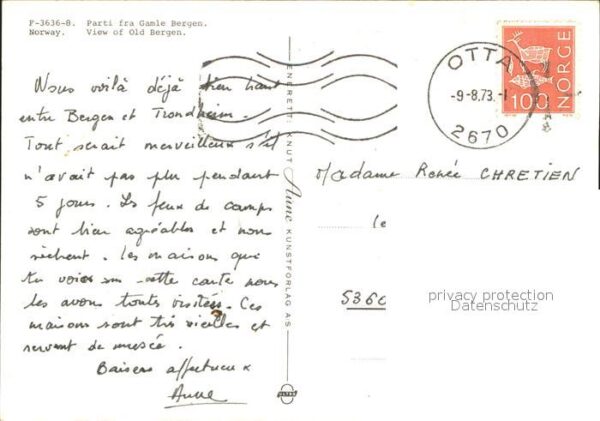 F-3636-8. Parti fra Gamle Bergen.
Norway. View of Old Bergen.
Nous voilà déjà bien haut
entre Bergen et Trondheim.
Tout serait merveilleux s'il
n'avait pas plu pendant
5 jours. Les feux de camps
sont bien agréables et nous
sèchent. Les maisons que
tu vois sur cette carte nous
les avons toutes visitées. Ces
maisons sont très vieilles et
servent de musée.
Baisers affectueux
Anne
ENERETT: KNUT Aune KUNSTFORLAG AS
ULTRA
OTTA
-9-8.73.-1
2670
NORGE
100
Madame Renée CHRETIEN
le
5360
privacy protection
Datenschutz